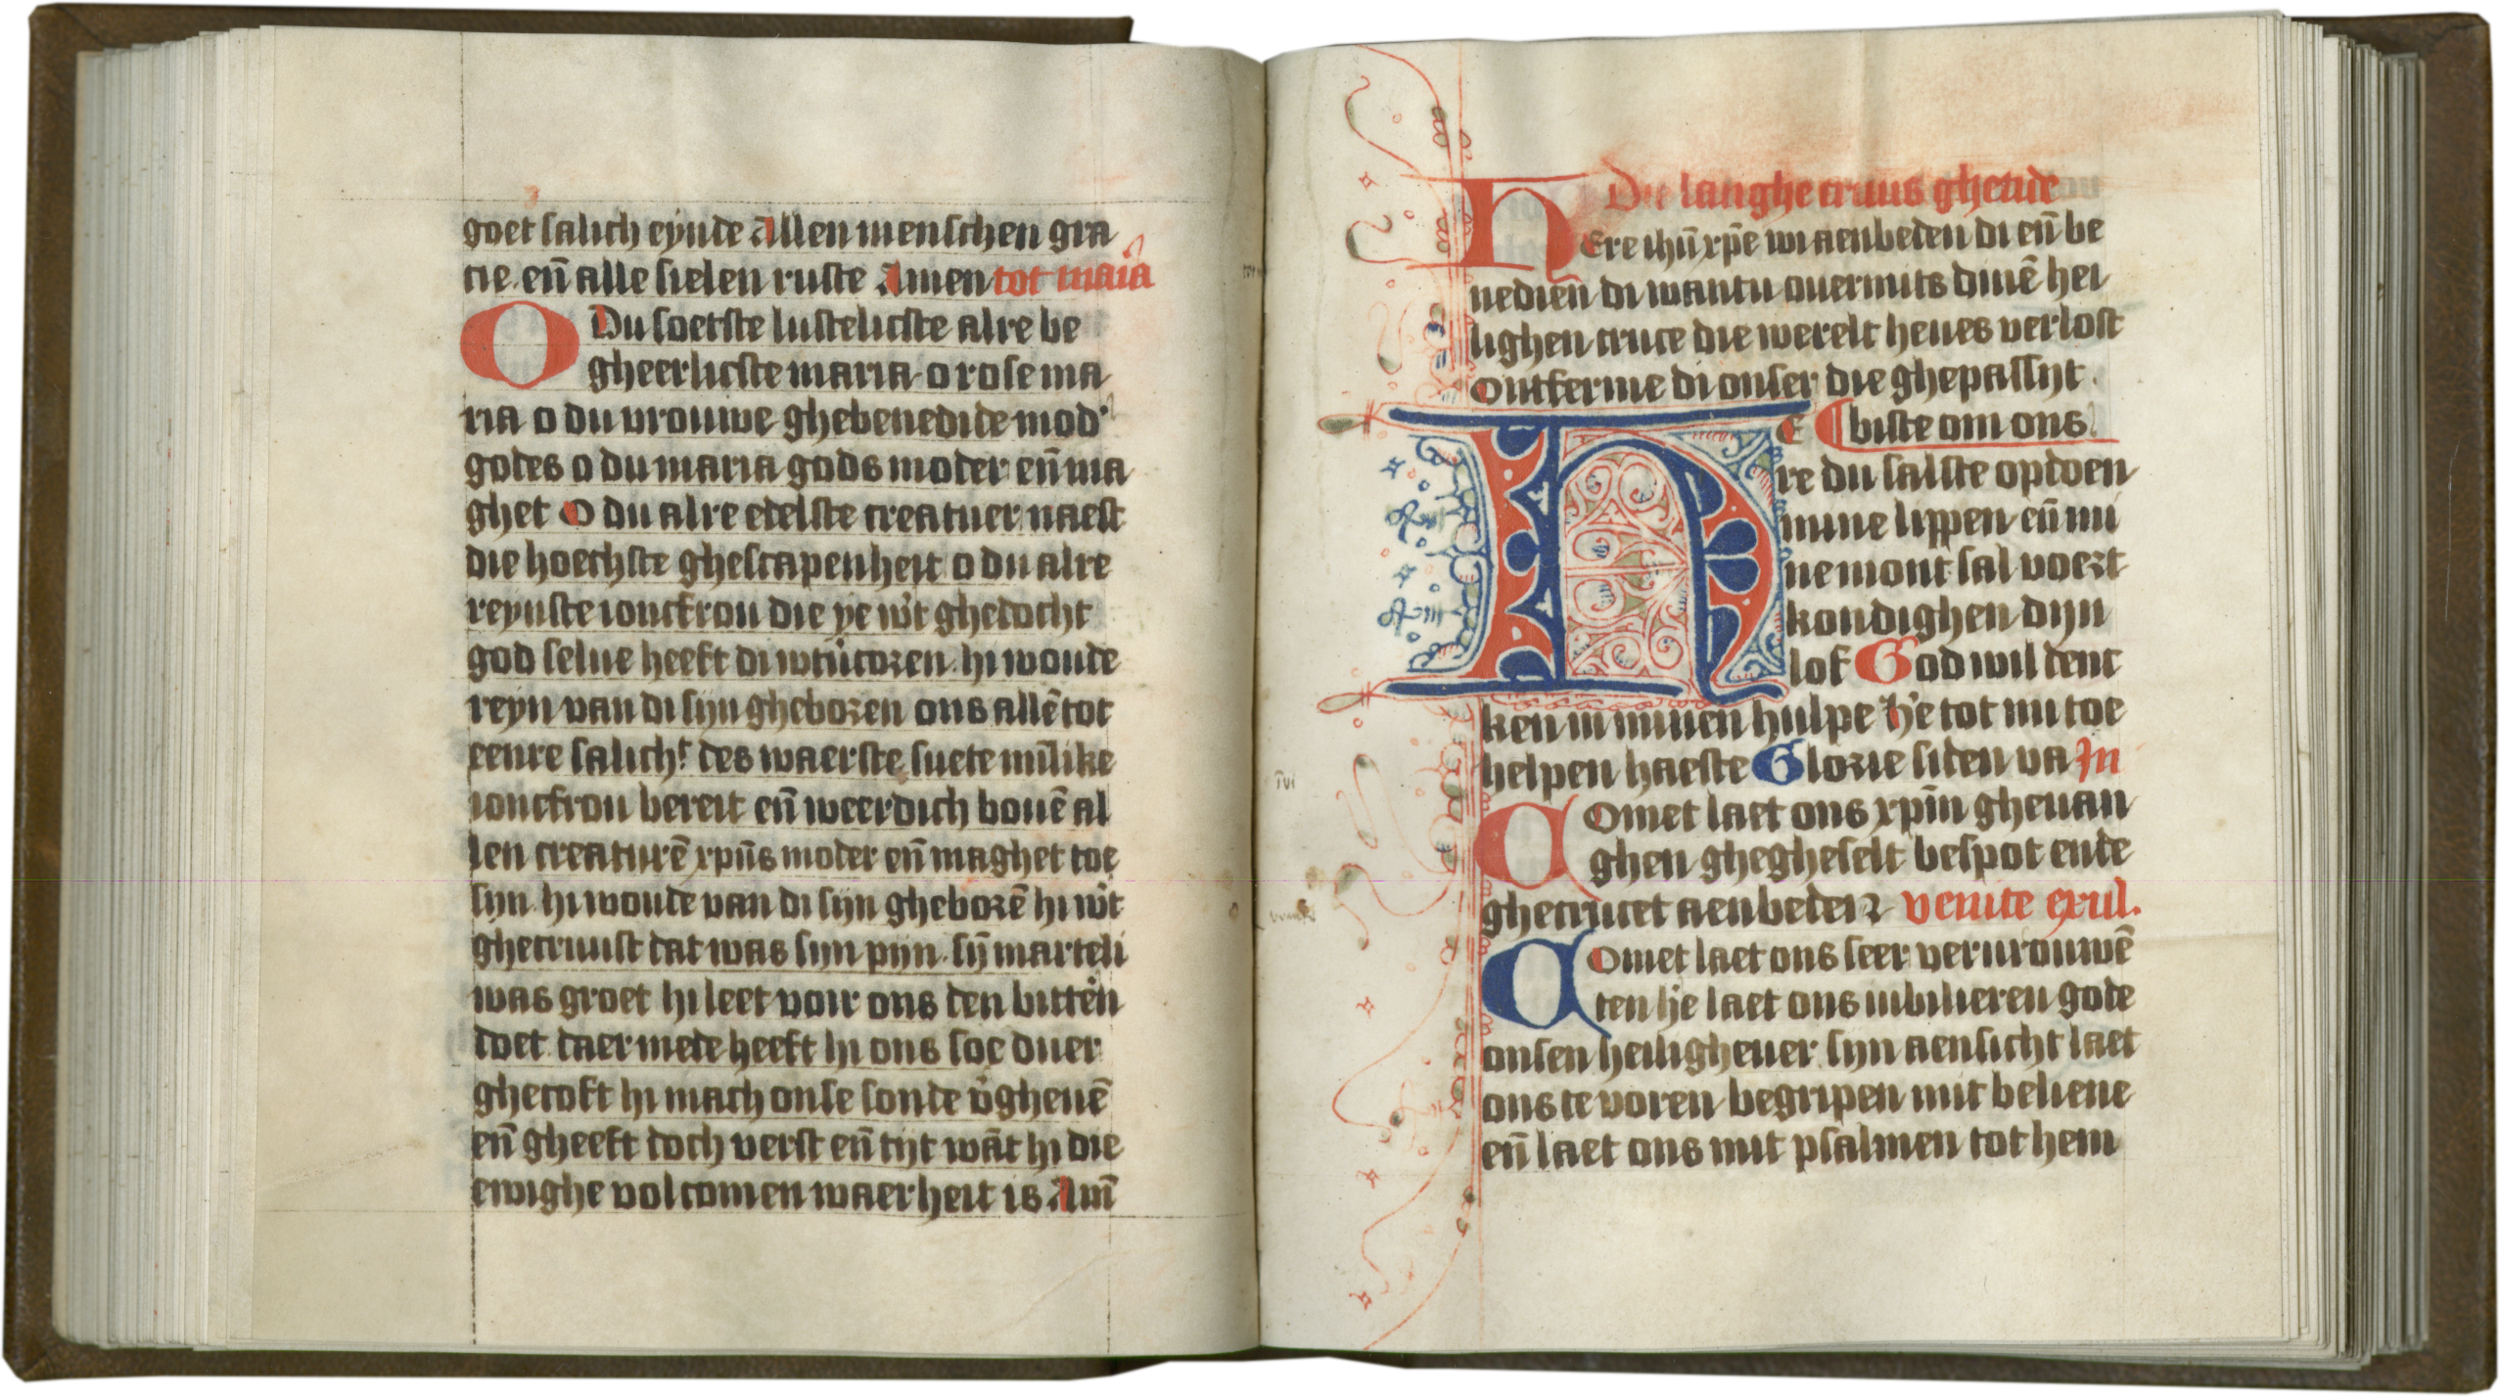 goet salich eynde Allen menschen gra
cie. en̄ alle sielen ruste Amen tot maīa
O Du soetste lustelicste alre be
gheerlicste maria o rose ma
ria o du vrouwe ghebenedide mod'
godes o du maria gods moder en̄ ma
ghet O du alre edelste creatuer naest
die hoechste ghescapenheit o du alre
reynste ioncfrou die ye wt ghedocht
god selue heeft di wtũcozen. hi woude
reyn van di sijn ghebozen ons allē tot
eenre salich.t des waerste suete mīlike
ioncfrou bereit en̄ weerdich bouē al
len creaturē xpūs moder en̄ maghet toe
sijn. hi woude van di sijn ghebozē hi wt
ghecruust dat was sijn pijn. sij̄ marteli
was groet hi leet voir ons den bitteōn
doet daer mede heeft hi ons soe duer
ghecoft hi mach onse sonde v̄gheuē
en̄ gheeft doch verst en̄ tijt wāt hi die
ewighe volcomen waerheit is Am̄
Die langhe cruus ghetide
Here ihū xp̄e wi aenbeden di en̄ be
nedien di wantu ouermits dinē hei
lighen cruce die werelt heues verlost
Ontferme di onser die ghepassijt
HE biste om ons.
re du salste opdoen
mine lippen en̄ mi
ne mont sal voezt
kondighen dijn
lof God wil denc
ken in minen hulpe h'e tot mi toe
helpen haeste Glozie si den va In
Comet laet ons xpīn gheuan
ghen ghegheselt bespot ende
ghecrucet aenbeden venite exul.
Comet laet ons seer verurouwē
den h'e laet ons iubilieren gode
onsen heilighe uer sijn aensicht laet
ons te voren begripen mit beliene
en̄ laet ons mit psalmen tot hem